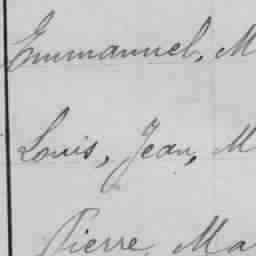 Emmanuel, M
Louis, Jean, M
Pierre, Ma